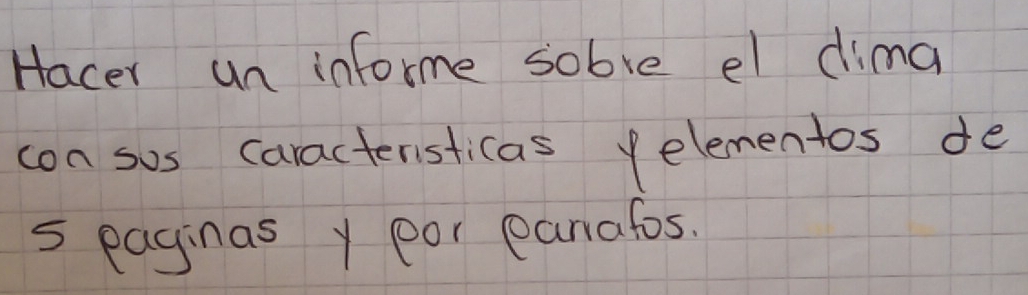 Hacer un informe sobre el clima
con sus caracteristicas y elementos de
5 paginas y por parrafos.